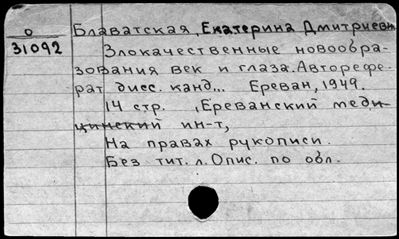 О Блаватская, Екатерина Дмитриевн
31092 Злокачественные новообра-
зования век и глаза. Авторефе-
рат дисс. канд... Ереван, 1949.
14 стр. , Ереванский меди-
цинский ин-т,
На правах рукописи.
Без тит. л. Опис. по обл.